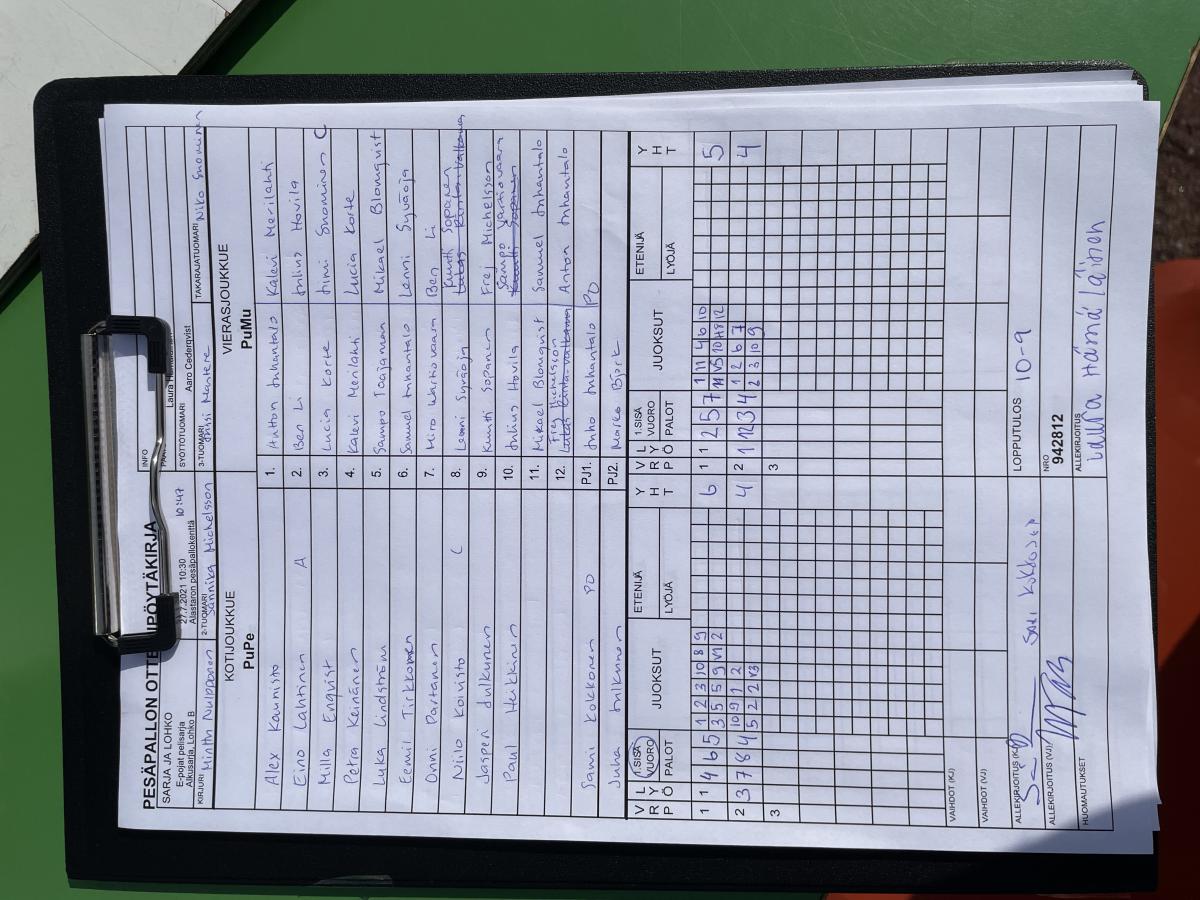 PESÄPALLON OTTELUPÖYTÄKIRJA
SARJA JA LOHKO
E-pojat pelisarja
Alkusarja, Lohko B
27.7.2021 10:30 10:47
Alastaron pesäpallokenttä
INFO
SYÖTTÖTUOMARI
Aaro Cederqvist
KIRJURI
2-TUOMARI Sannika Michelsson
3-TUOMARI Jussi Mantere
TAKARAJATUOMARI Niko Suominen
KOTIJOUKKUE
PuPe
VIERASJOUKKUE
PuMu
Alex Kaunisto 1. Anton Inhantalo Kalevi Merilahti
Eino Lahtinen A 2. Ben Li Julius Hovila
Milla Enqvist 3. Lucia Korte Jimi Suominen C
Petra Keinänen 4. Kalevi Merilahti Lucia Korte
Luka Lindström 5. Sampo Mikael Blomqvist
Eemil Tirkkonen 6. Samuel Inhantalo Lenni Syväoja
Onni Partanen 7. Ben Li
Niilo Koivisto C 8. Lenni Syväoja Kuutti Sopanen
Jasperi Julkunen 9. Kuutti Sopanen Frej Michelsson
Paul Heikkinen 10. Julius Hovila Sampo
11. Mikael Blomqvist Samuel Inhantalo
12. Frej Michelsson Anton Inhantalo
Sami Kokkonen PO PJ1. Juho Inhantalo PO
Juha Julkunen PJ2. Marko Björk
V R L Y P Ö 1.SISÄ VUORO PALOT JUOKSUT ETENIJÄ LYÖJÄ Y H T V R L Y P Ö 1.SISÄ VUORO PALOT JUOKSUT ETENIJÄ LYÖJÄ Y H T
1 1 4 6 5 1 2 3 10 8 9 6 1 1 2 5 7 1 11 4 6 10 5
3 5 5 9 V1 2
2 3 7 8 4 10 9 1 2 4 2 1 12 3 4 1 2 6 7 4
5 2 2 V3 2 3 10 9
3 3
VAIHDOT (KJ)
VAIHDOT (VJ)
ALLEKIRJOITUS (KJ) Sami Kokkonen LOPPUTULOS 10-9
ALLEKIRJOITUS (VJ) NRO
942812
HUOMAUTUKSET ALLEKIRJOITUS
Hämäläinen